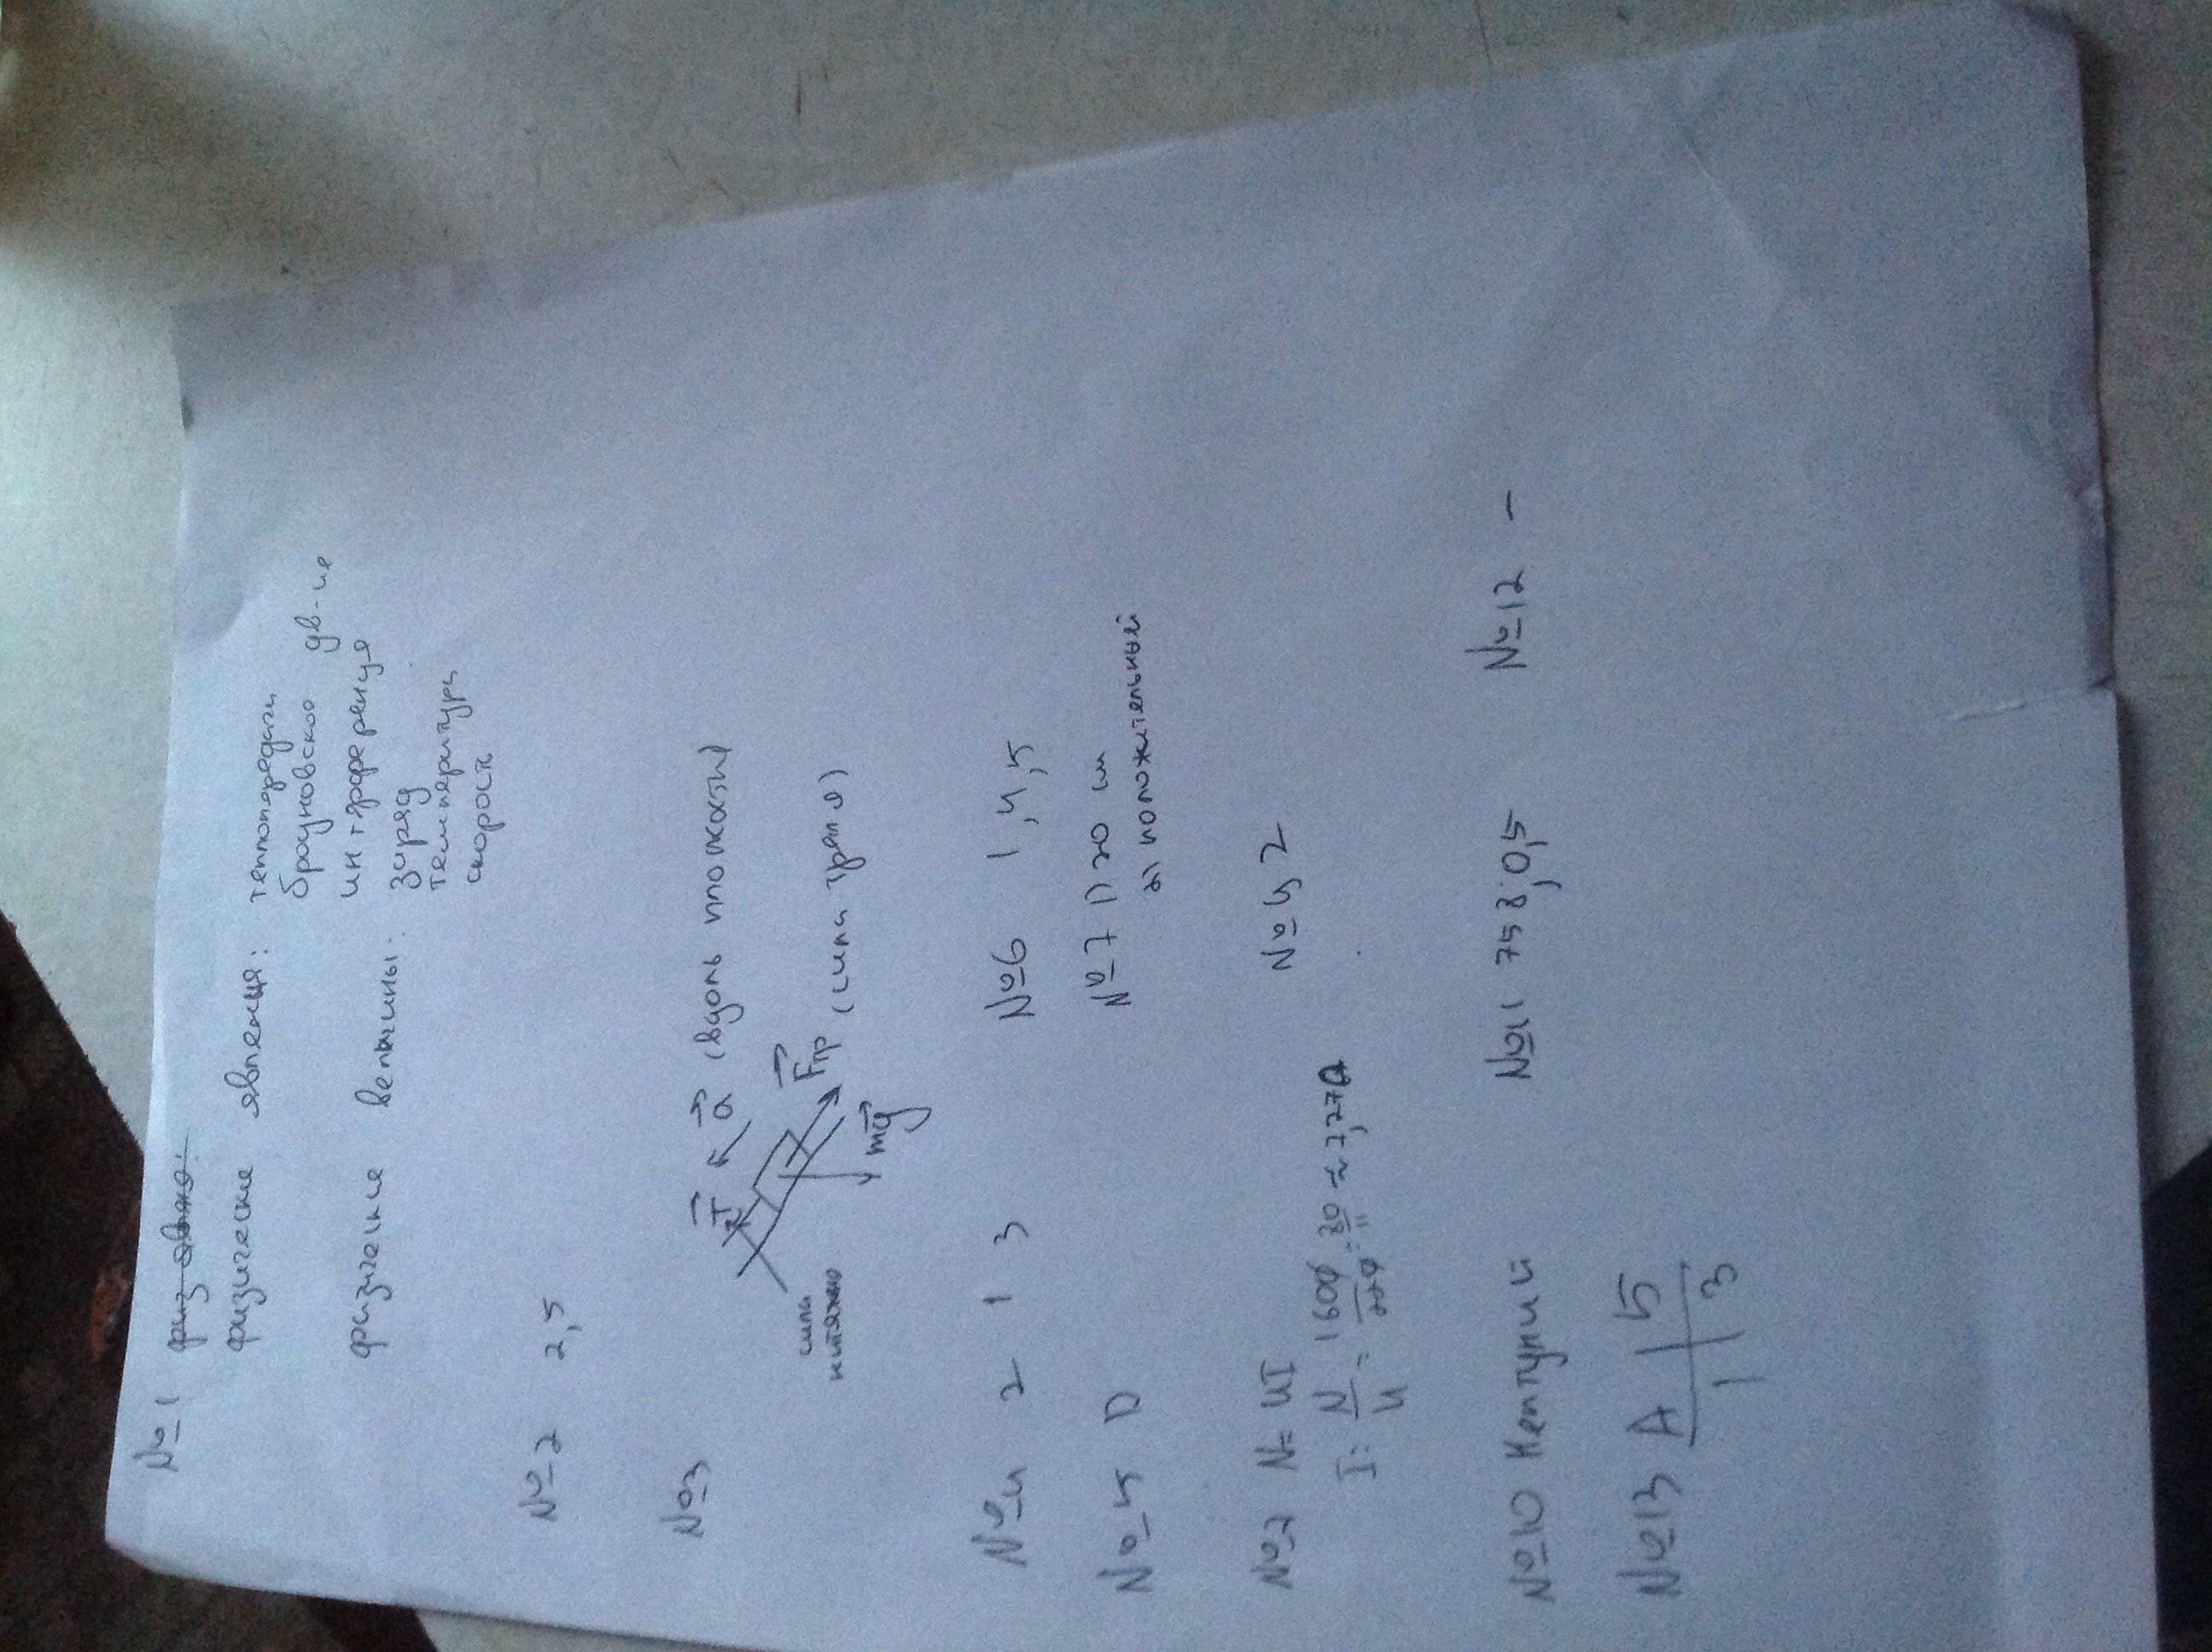 №1 физ явле:
физические явления: теплопередачи
броуновское дв-ие
интерференция
физические величины: заряд
температура
скорость
№2 2,5
№3
T a (вдоль плоскости)
сила натяже
Fтр (сила трения)
mg
№4 2 1 3 №6 1,4,5
№5 D №7 1) 20 см
2) положительный
№7 N=UI №9 2
I= N/U = 1600/220 = 80/11 ≈ 7,27A
№10 Нептуний №11 758;0,5 №12 –
№13 A | 5
1 | 3